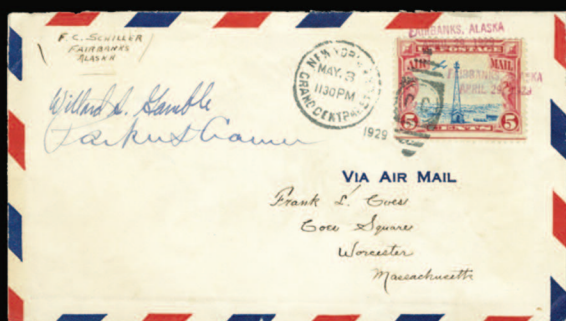 F. C. SCHILLER
FAIRBANKS
ALASKA
Willard S. Gamble
Parker D Cramer
NEW YORK, N.Y.
MAY. 3
1130 PM
GRAND CENTRAL
1929
FAIRBANKS, ALASKA
U.S. POSTAGE
AIR MAIL
FAIRBANKS, ALASKA
APRIL
5 CENTS 5
VIA AIR MAIL
Frank L. Coes
Coes Square
Worcester
Massachusetts